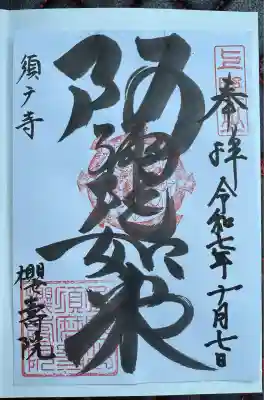 奉拝
令和七年十月七日
阿彌陀如来
須广寺
櫻壽院